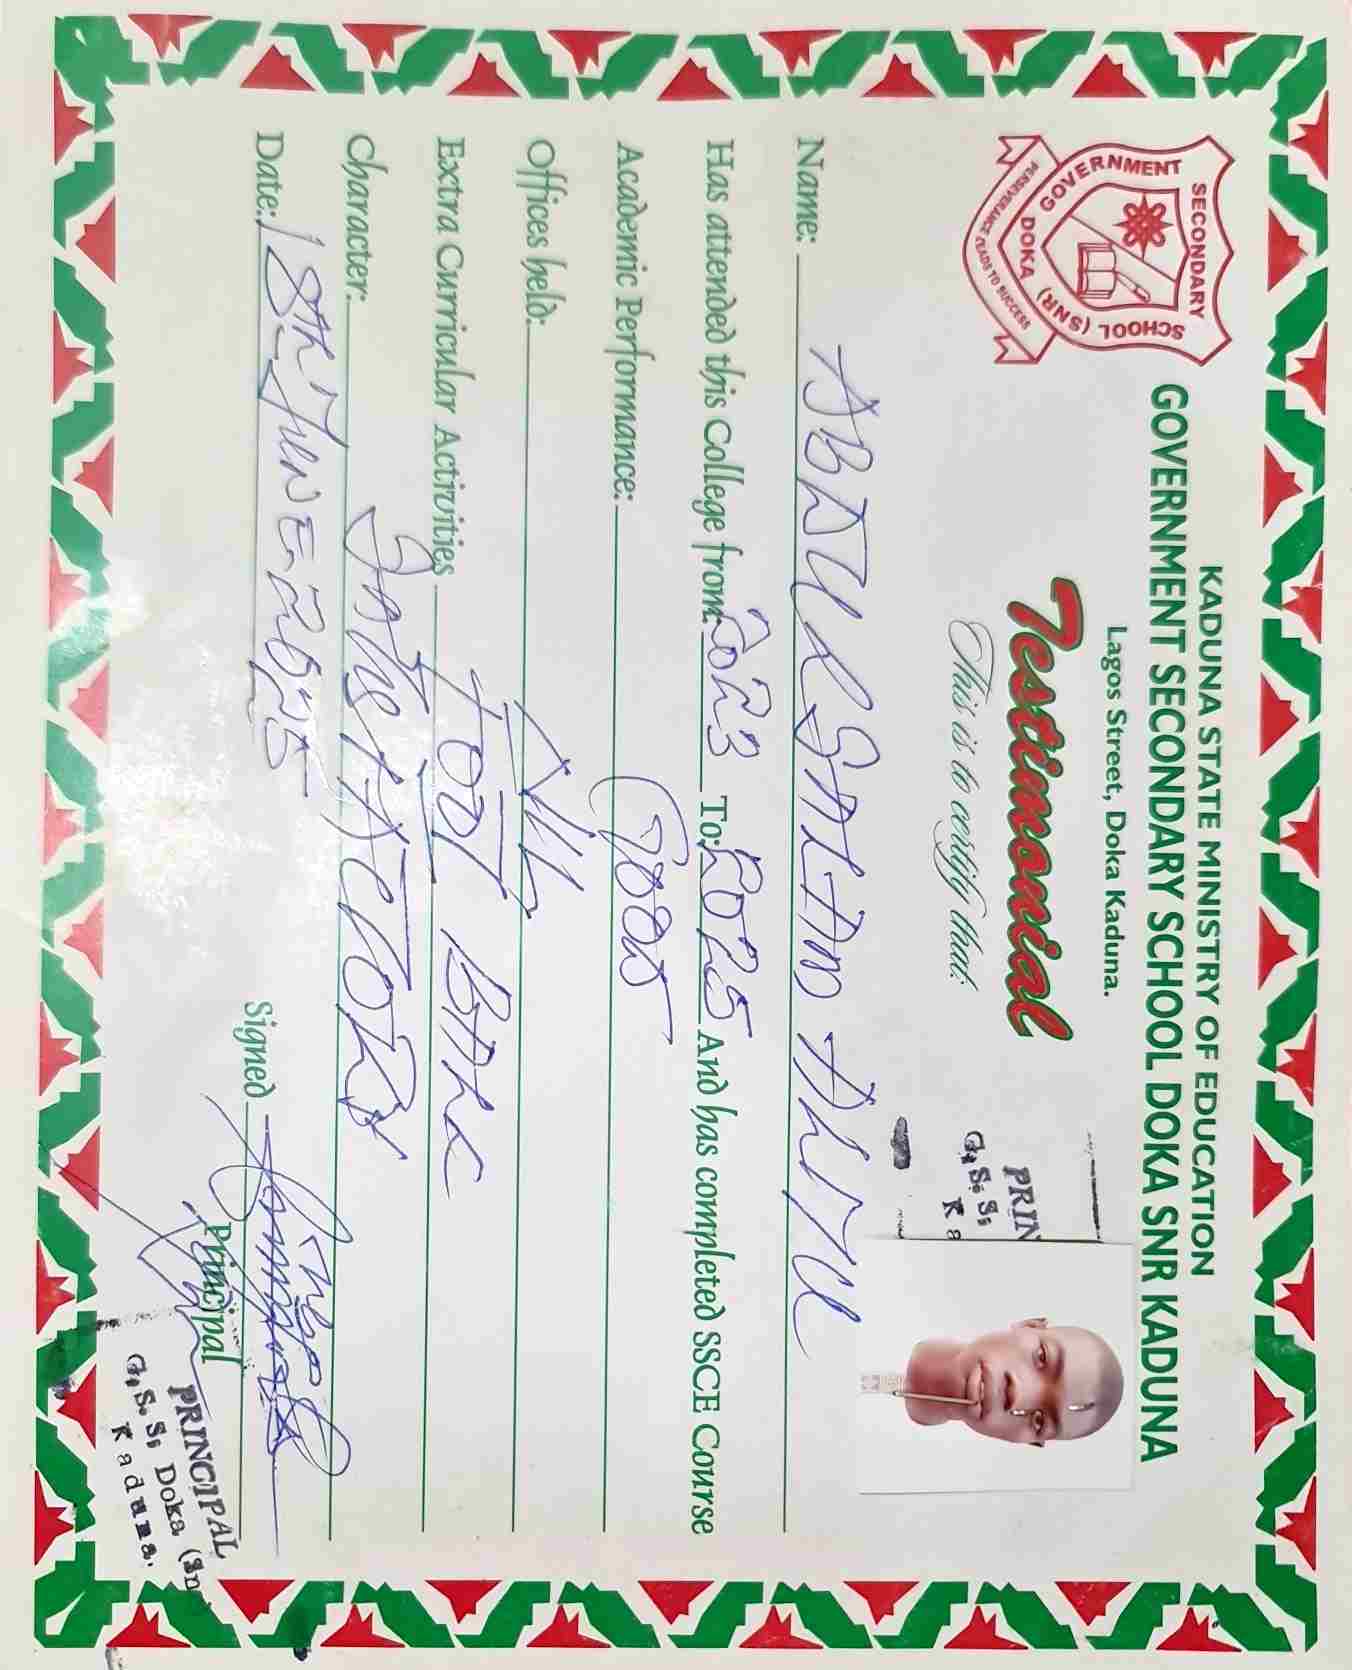 KADUNA STATE MINISTRY OF EDUCATION
GOVERNMENT SECONDARY SCHOOL DOKA SNR KADUNA
Lagos Street, Doka Kaduna.
GOVERNMENT SECONDARY SCHOOL (SNR) DOKA
PERSEVERANCE LEADS TO SUCCESS
Testimonial
This is to certify that:
PRIN
G.S.S;
Ka
Name: ABDULSALAM ALIYU
Has attended this College from: 2023 To: 2025 And has completed SSCE Course
Academic Performance: Good
Offices held:
Extra Curricular Activities FOOT BALL
Character: SATISFACTORY
Date: 18th JUNE 2025 Signed
Principal
PRINCIPAL
G.S.S; Doka (Sn
Kaduna.